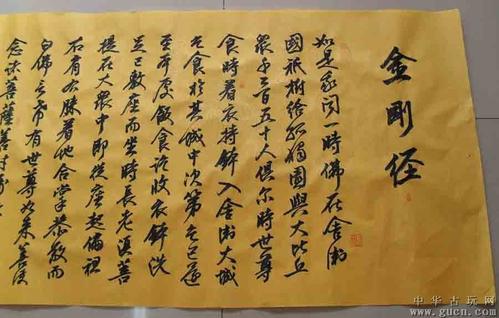 金剛經
如是我闻一時佛在舍衛
國祇樹给孤獨園與大比丘
眾千二百五十人俱尔時世尊
食時着衣持鉢入舍衛大城
乞食於其城中次第乞已還
至本處飯食讫收衣鉢洗
足已敷座而坐時長老須菩
提在大眾中即從座起偏袒
右肩右膝着地合掌恭敬而
白佛言希有世尊如来善護
念诸菩薩善付
中华古玩网
www.gucn.com